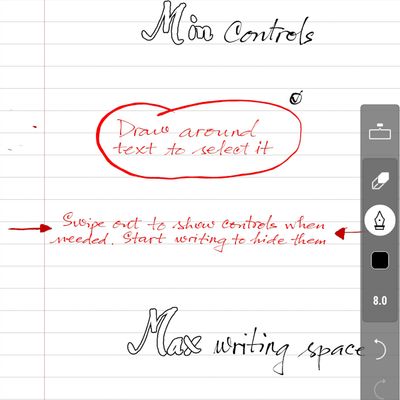 Min Controls
Draw around
text to select it
Swipe out to show controls when
needed. Start writing to hide them
8.0
Max writing space